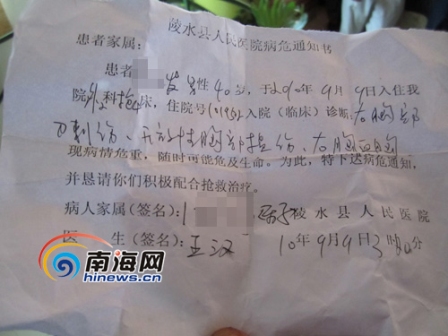 陵水县人民医院病危通知书
患者家属:
患者 发 男性 40 于 2010年9月9日入住我
院外科 床,住院号 入院(临床)诊断:右胸部
刀刺伤、开放性胸部损伤、右胸血胸
现病情危重,随时可能危及生命。为此,特下达病危通知,
并恳请你们积极配合抢救治疗。
病人家属(签名): 陵水县人民医院
医 生(签名):王汉 10年9月9日3时 分
南海网
hinews.cn